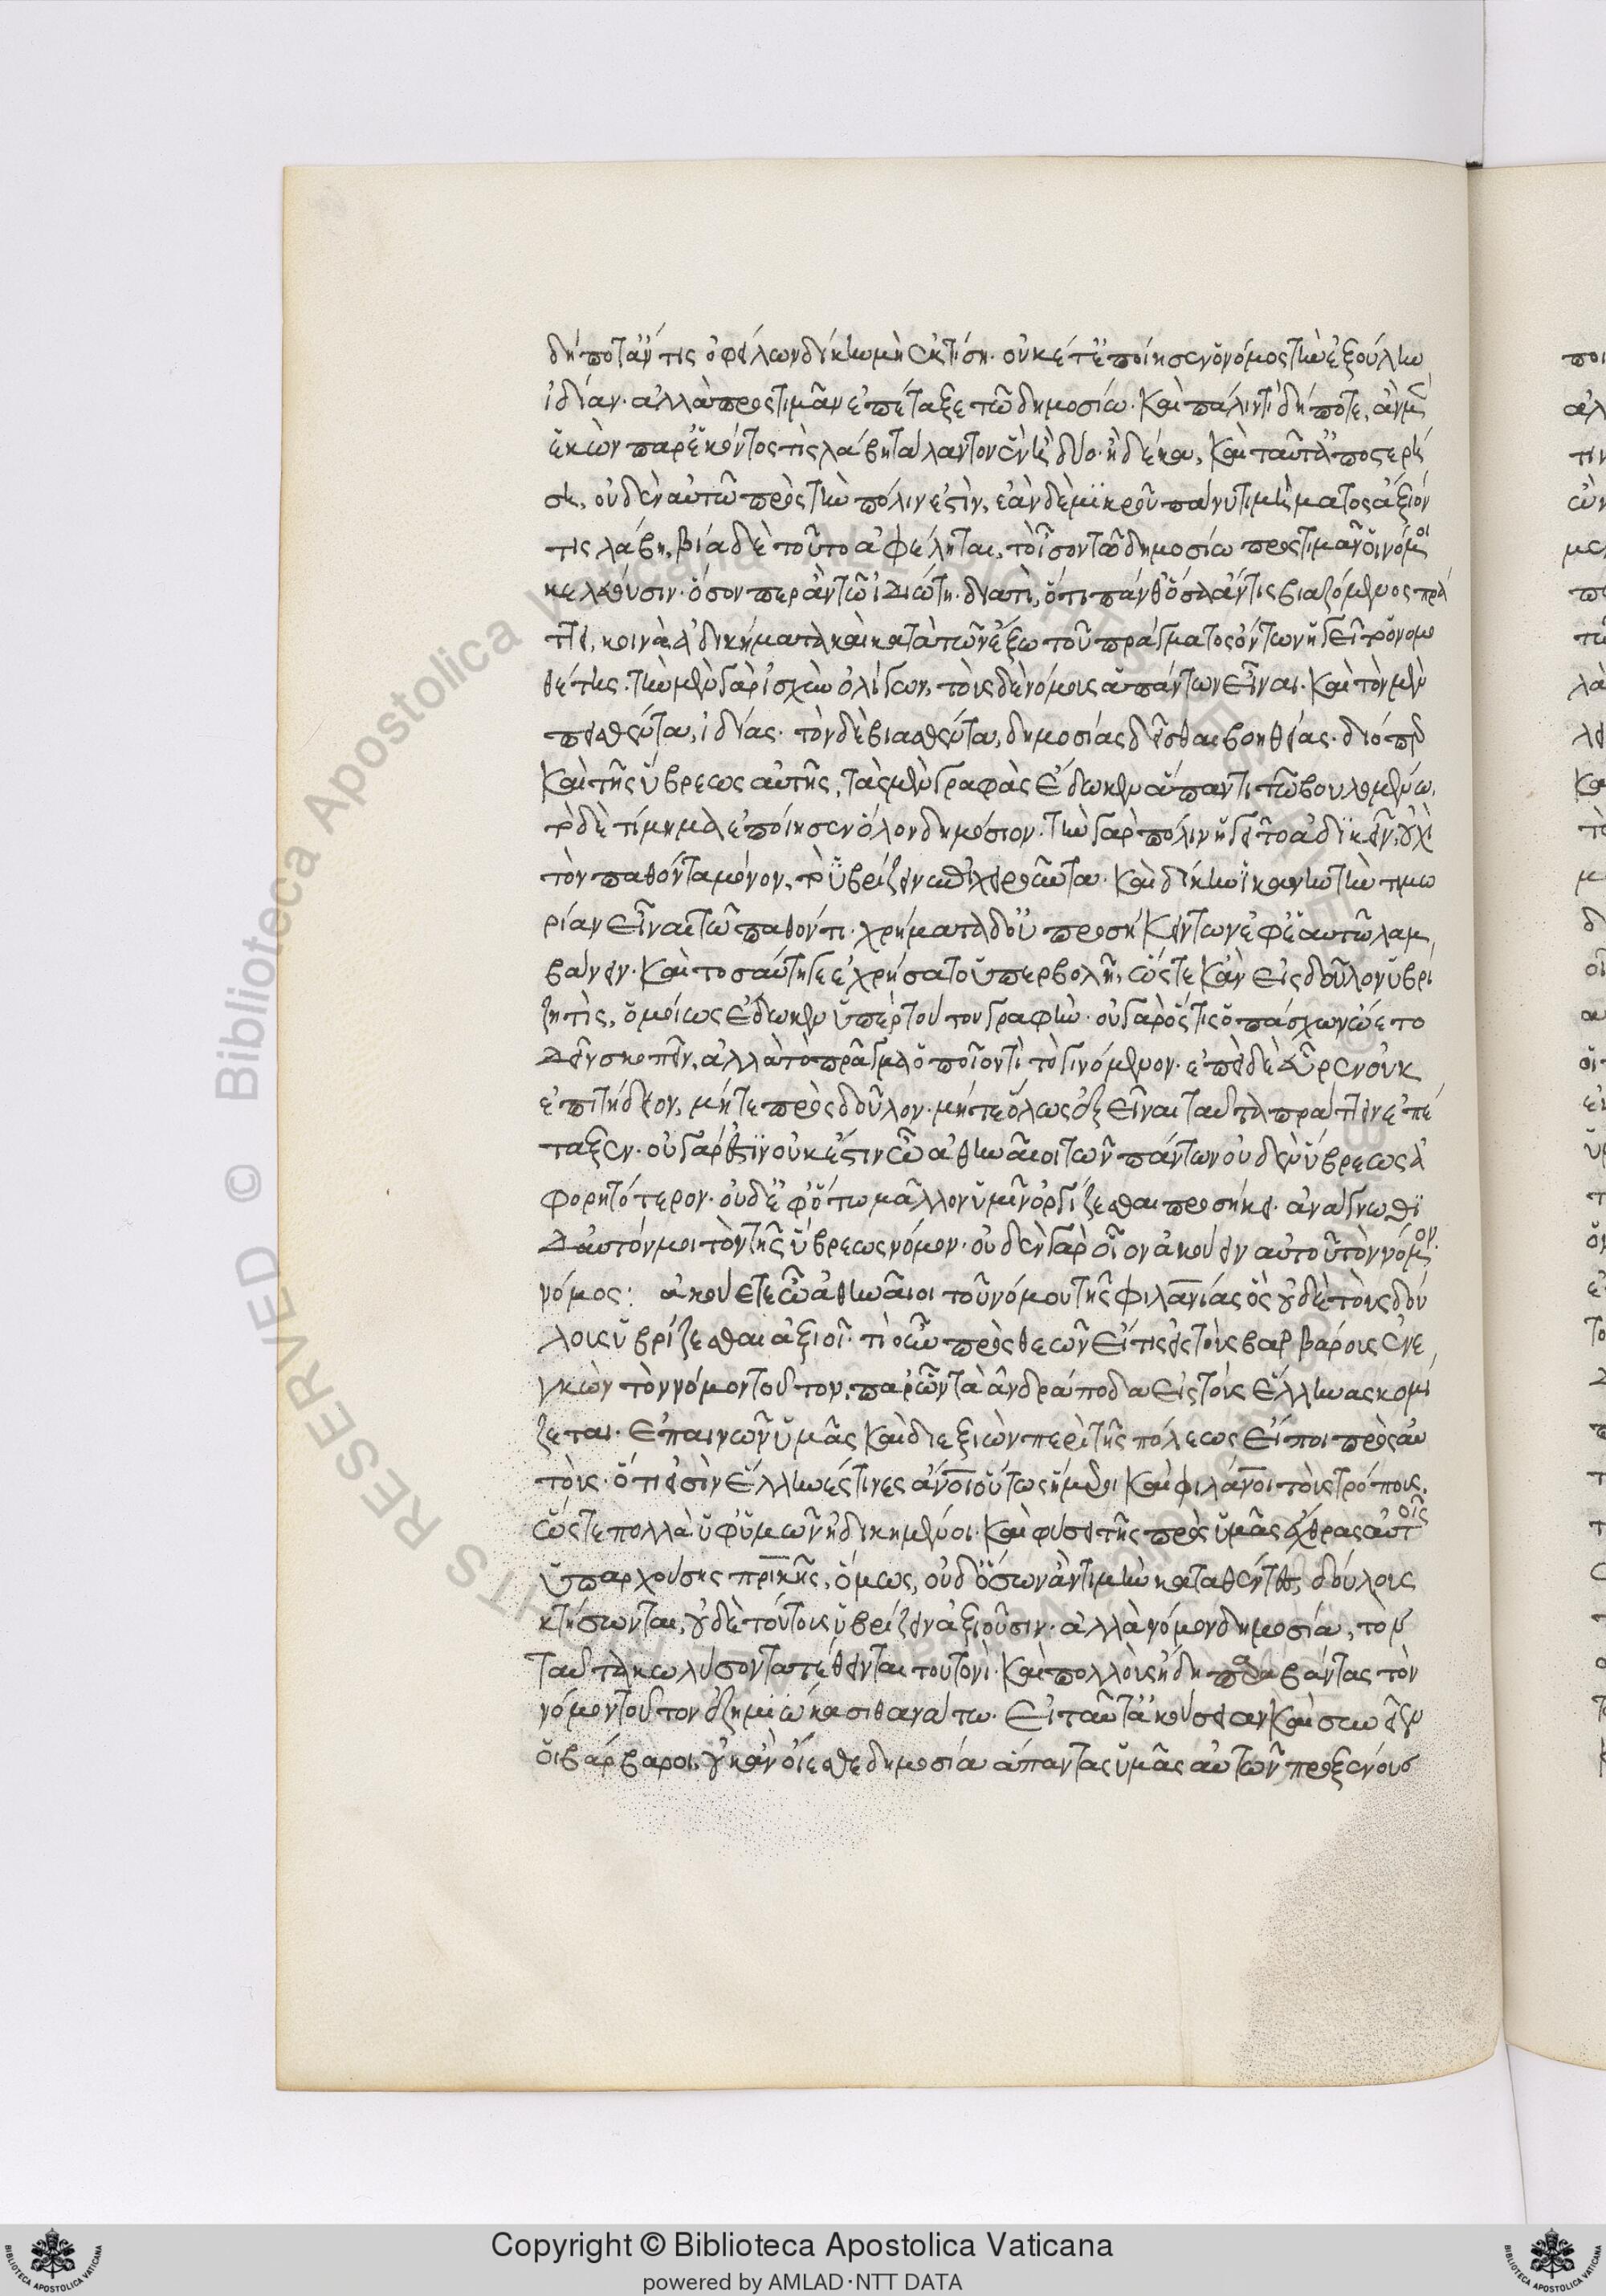 δήποτ' ἄν τις ὀφείλων δίκην μὴ ἐκτίση· οὐκέτ' ἐποίησεν ὁ νόμος τὴν ἐξούλην
ἰδίαν· ἀλλὰ προστιμᾶν ἐπέταξε τῶ δημοσίω. καὶ πάλιν τί δήποτε, ἂν μ(ὲν)
ἑκὼν παρ' ἑκόντος τὶς λάβη τάλαντον ἓν ἢ δύο· ἢ δέκα, καὶ ταῦτ' ἀποστερή
ση, οὐδὲν αὐτῶ πρὸς τὴν πόλιν ἐστὶν, ἐὰν δὲ μικροῦ πάνυ τιμήματος ἄξιόν
τις λάβη, βία δὲ τοῦτο ἀφέληται, τὸ ἴσον τῶ δημοσίω προστιμᾶν οἱ νόμοι
κελεύουσιν· ὅσον περ ἂν τῶ ἰδιώτη· διατί, ὅτι πάνθ' ὅσα ἄν τις βιαζόμενος πρά
ττει, κοινὰ ἀδικήματα καὶ κατὰ τῶν ἔξω τοῦ πράγματος ὄντων ἡγεῖτο ὁ νομο
θέτης. τὴν μὲν γὰρ ἰσχὺν ὀλίγων, τοὺς δὲ νόμους ἁπάντων εἶναι. καὶ τὸν μὲν
πεισθέντα, ἰδίας· τὸν δὲ βιασθέντα, δημοσίας δεῖσθαι βοηθείας· διόπερ
καὶ τῆς ὕβρεως αὐτῆς, τὰς μὲν γραφὰς ἔδωκεν ἅπαντι τῶ βουλομένω.
τὸ δὲ τίμημα ἐποίησεν ὅλον δημόσιον. τὴν γὰρ πόλιν ἡγεῖτο ἀδικεῖν, οὐχὶ
τὸν παθόντα μόνον, τὸν ὑβρίζειν ἐπιχειροῦντα. καὶ δίκην ἱκανὴν τὴν τιμω
ρίαν εἶναι τῶ παθόντι· χρήματα δ' οὐ προσήκειν τῶν ἐφ' ἑαυτῶ λαμ
βάνειν. καὶ τοσαύτη γε ἐχρήσατο ὑπερβολῆ, ὥστε κἂν εἰς δοῦλον ὑβρί
ζη τὶς, ὁμοίως ἔδωκεν ὑπὲρ τούτου γραφήν· οὐ γὰρ ὅστις ὁ πάσχων ὤετο
δεῖν σκοπεῖν, ἀλλὰ τὸ πρᾶγμα ὁποῖόν τι τὸ γινόμενον· ἐπεὶ δὲ εὗρεν οὐκ
ἐπιτήδειον, μήτε πρὸς δοῦλον· μήτε ὅλως ἐξεῖναι ταῦτα πράττειν ἐπέ
ταξεν. οὐ γάρ ἐστιν οὐκ ἔστιν ὦ ἀθηναῖοι τῶν πάντων οὐδὲν ὕβρεως ἀ
φορητότερον· οὐδ' ἐφ' ὅτω μᾶλλον ὑμῖν ὀργίζεσθαι προσήκει. ἀνάγνωθι
δ' αὐτόν μοι τὸν τῆς ὕβρεως νόμον· οὐδὲν γὰρ οἷον ἀκούειν αὐτοῦ τὸν νόμον.
νόμος: ἀκούετε ὦ ἀθηναῖοι τοῦ νόμου τῆς φιλανίας ὃς οὐδὲ τοὺς δού
λους ὑβρίζεσθαι ἀξιοῖ· τί οὖν πρὸς θεῶν εἴ τις εἰς τοὺς βαρβάρους ἐνε
γκὼν τὸν νόμον τοῦτον, παρ' ὧν τὰ ἀνδράποδα εἰς τοὺς ἕλληνας κομί
ζεται· ἐπαινῶν ὑμᾶς καὶ διεξιὼν περὶ τῆς πόλεως εἴποι πρὸς αὐ
τοὺς· ὅτι εἰσὶν ἕλληνές τινες ἄνοι οὕτως ἥμεροι καὶ φιλάνοι τοὺς τρόπους,
ὥστε πολλὰ ὑφ' ὑμῶν ἠδικημένοι· καὶ φύσει τῆς πρὸς ὑμᾶς ἔχθρας αὐτοῖς
ὑπαρχούσης πρικῆς, ὅμως, οὐδ' ὅσων ἂν τιμὴν καταθέντες δούλους
κτήσωνται, οὐδὲ τούτους ὑβρίζειν ἀξιοῦσιν· ἀλλὰ νόμον δημοσία, τὸν
ταῦτα κωλύσοντα τέθεινται τουτονί· καὶ πολλοὺς ἤδη παραβάντας τὸν
νόμον τοῦτον ἐζημιώκασι θανάτω. εἰ ταῦτα ἀκούσειαν καὶ συνεῖεν
οἱ βάρβαροι, οὐκ ἂν οἴεσθε δημοσία ἅπαντας ὑμᾶς αὐτῶν προξένους
Copyright © Biblioteca Apostolica Vaticana
powered by AMLAD·NTT DATA